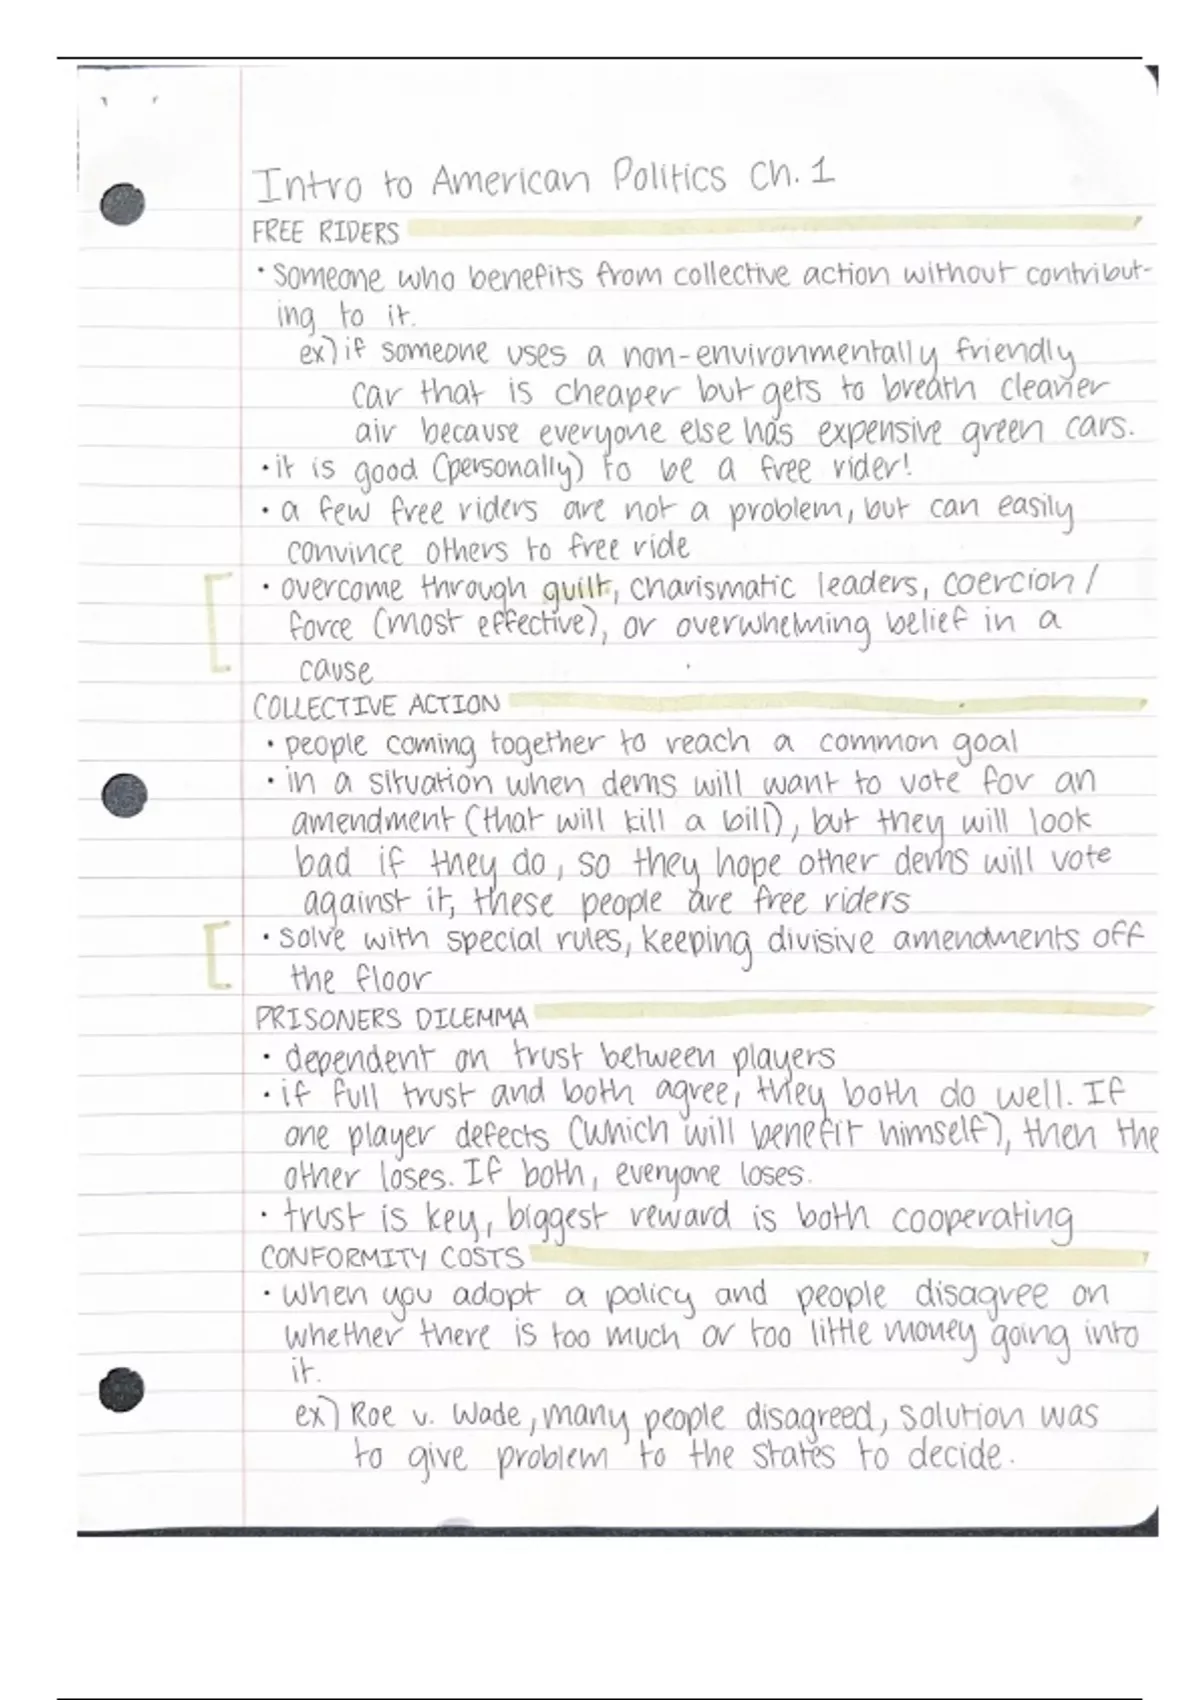 Intro to American Politics Ch. 1
FREE RIDERS
• someone who benefits from collective action without contribut-
ing to it.
ex) if someone uses a non-environmentally friendly
car that is cheaper but gets to breath cleaner
air because everyone else has expensive green cars.
• it is good (personally) to be a free rider!
• a few free riders are not a problem, but can easily
convince others to free ride
• overcome through guilt, charismatic leaders, coercion /
force (most effective), or overwhelming belief in a
cause
COLLECTIVE ACTION
• people coming together to reach a common goal
• in a situation when dems will want to vote for an
amendment (that will kill a bill), but they will look
bad if they do, so they hope other dems will vote
against it, these people are free riders
• solve with special rules, keeping divisive amendments off
the floor
PRISONERS DILEMMA
• dependent on trust between players
• if full trust and both agree, they both do well. If
one player defects (which will benefit himself), then the
other loses. If both, everyone loses.
• trust is key, biggest reward is both cooperating
CONFORMITY COSTS
• when you adopt a policy and people disagree on
whether there is too much or too little money going into
it.
ex) Roe v. Wade, many people disagreed, solution was
to give problem to the states to decide.